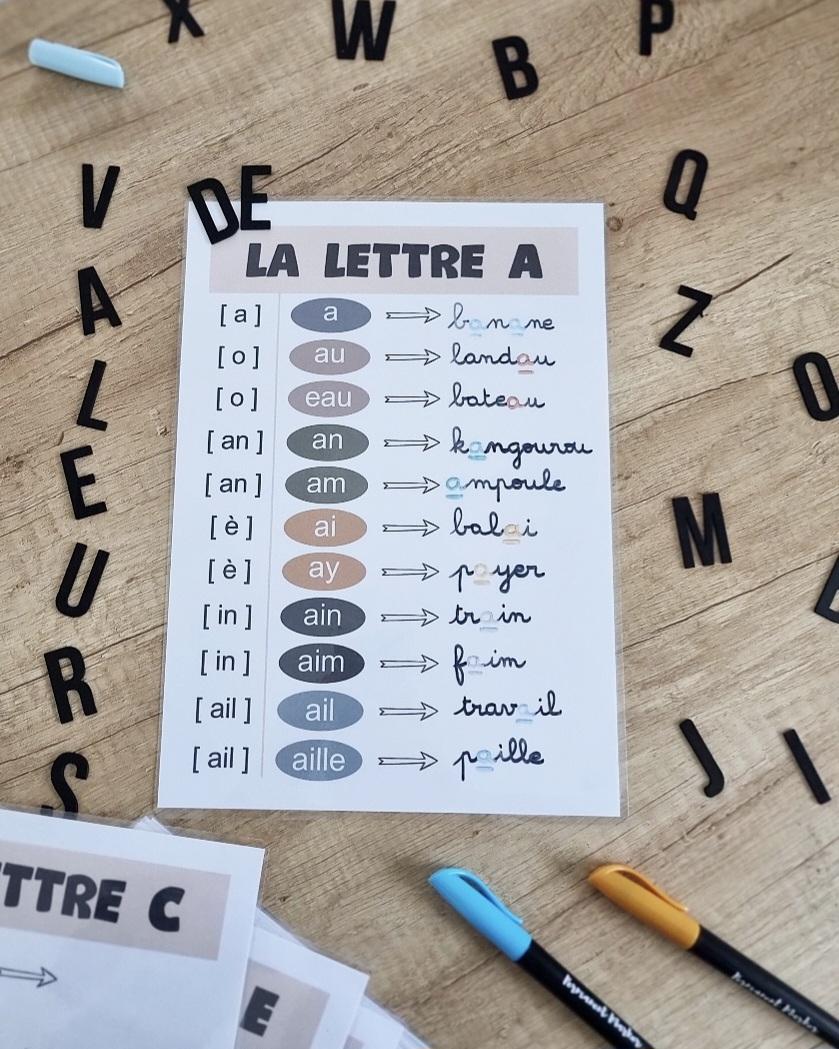 X W B P
V A L E U R S
DE
LA LETTRE A
[a] a banane
[o] au landau
[o] eau bateau
[an] an kangourou
[an] am ampoule
[è] ai balai
[è] ay payer
[in] ain train
[in] aim faim
[ail] ail travail
[ail] aille paille
Q
Z
O
M
J I
TTRE C
E
Permanent Marker
Permanent Marker